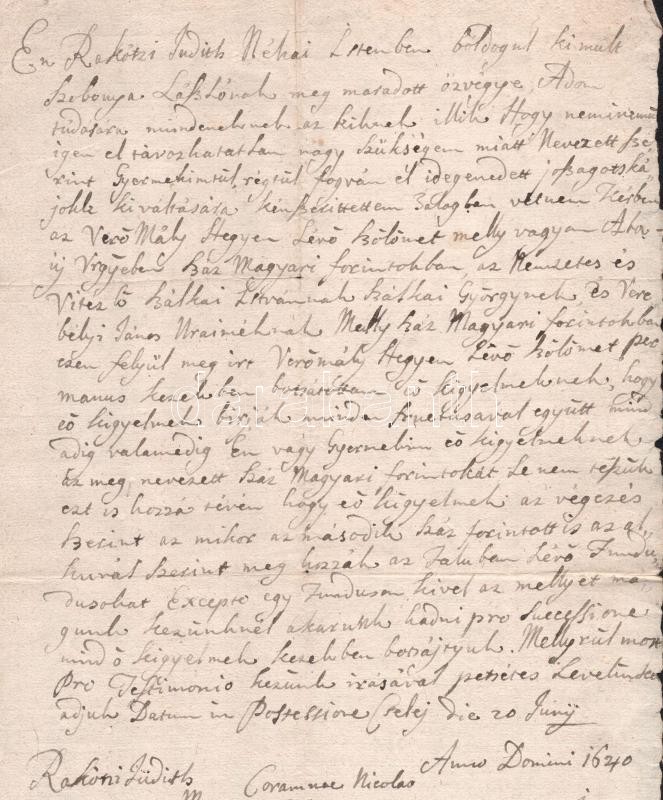 En Rakótzi Judith Néhai Istenben boldogul kimult
Szebonya Lászlónak meg maradott özvegye, Adom
tudására mindeneknek az kiknek illik Hogy neminemü
igen el távozhatatlan nagy szükségem miatt Nevezett sze
rint Gyermekimtül, régtül fogván el idegenedett joszagotská
jokk kiváltására kénszerittettem Zalagban vetnem
az Verö Mály Hegyen Lévö Szölömet melly vagyon
Uj száz Magyari forintokban, az Nemzetes és
Vitéz Szálkai Istvánnak Szálkai Györgynek, és Vere
bélyi János Uraiméknak Melly száz Magyari forintokban
ezen felyül meg irt Verömály Hegyen Lévö Szölömet per
manus kezekben botsátottam ö kigyelmeknek, hogy
eö kigyelmek birják minden fructusával együtt mind
adig valamedig En vagy Gyermekim eö kigyelmeknek
az meg nevezett száz Magyari forintokat le nem tészük
ezt is hozzá tévén hogy eö kigyelmek az végezés
szerint az mikor az második száz forintott is az al
kuvás szerint meg hozzák az faluban Lévö Fundu
dusokat Excepto egy Funduson kivel az mellyet ma
gunk kezünknél akarunk hadni pro successione
mind ö kigyelmek kezekben botsájtyuk. Mellyrül most
Pro Testimonio kezünk irásával petsétes Levelünket
adjuk Datum in Possessione Cselej die 20 Junij
Anno Domini 1640
Rakótzi Judith Coram me Nicolao
darabanth